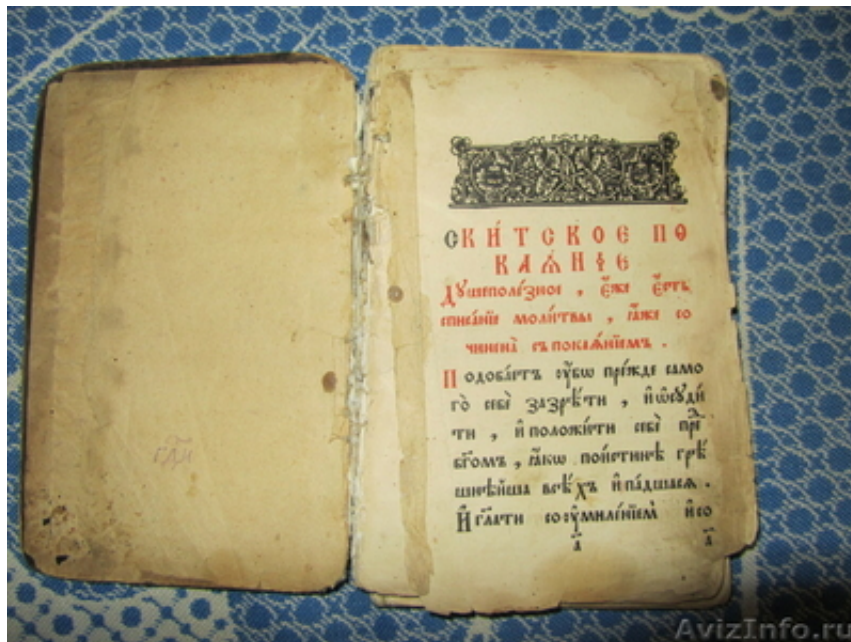 СКИ́ТСКОЕ ПО
КАѦ́НЇЕ
Дꙋшеполе́зное , є҆́же є҆́сть
списа́нїе моли́твы , ꙗ҆́же со
чинена̀ съ покаѧ́нїемъ .
Подоба́етъ ᲂу҆́бѡ пре́жде само
го̀ себѐ зазрѣ́ти , и҆ ѡ҆сꙋди́
ти , и҆ положи́ти себѐ пре́д̾
бг҃омъ , ꙗ҆́кѡ пои́стинѣ грѣ́
шнѣйша всѣ́хъ и҆ па́дшасѧ .
И҆ гл҃ати со ᲂу҆миле́нїемъ и҆ со
а҃ а҃
AvizInfo.ru